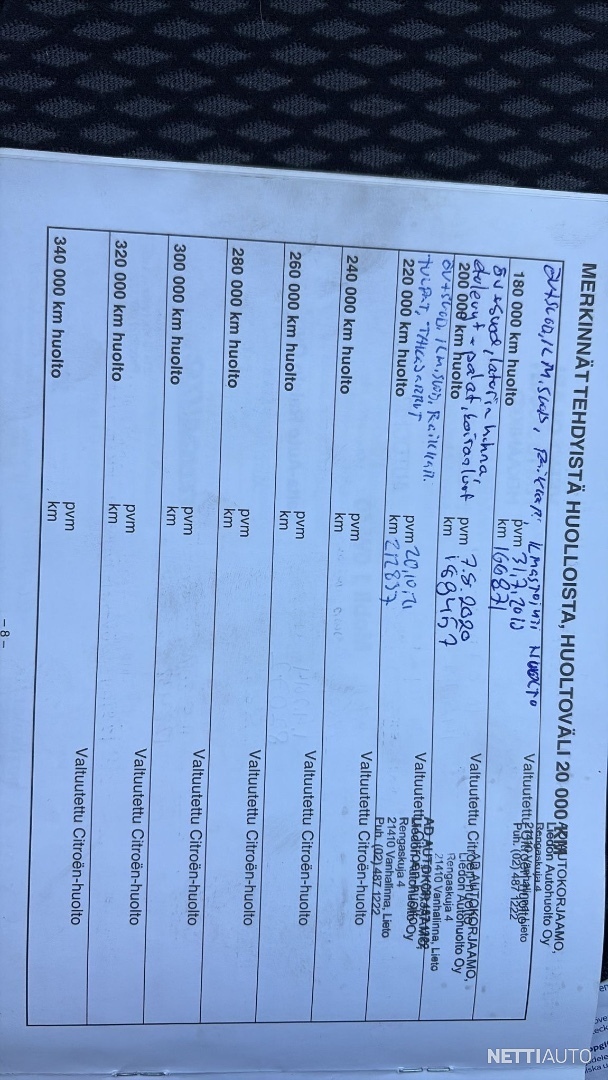 MERKINNÄT TEHDYISTÄ HUOLLOISTA, HUOLTOVÄLI 20 000 KM
180 000 km huolto
pvm 31.7.2018
km 166871
Valtuutettu
AD AUTOKORJAAMO,
Liedon Autohuolto Oy
Rengaskuja 4
21410 Vanhalinna, Lieto
Puh. (02) 487 1222
200 000 km huolto
pvm 7.5.2020
km 188457
Valtuutettu Citroën-huolto
AD AUTOKORJAAMO,
Liedon Autohuolto Oy
Rengaskuja 4
21410 Vanhalinna, Lieto
220 000 km huolto
pvm 20.10.21
km 212837
Valtuutettu
AD AUTOKORJAAMO,
Liedon Autohuolto Oy
Rengaskuja 4
21410 Vanhalinna, Lieto
Puh. (02) 487 1222
240 000 km huolto
pvm
km
Valtuutettu Citroën-huolto
260 000 km huolto
pvm
km
Valtuutettu Citroën-huolto
280 000 km huolto
pvm
km
Valtuutettu Citroën-huolto
300 000 km huolto
pvm
km
Valtuutettu Citroën-huolto
320 000 km huolto
pvm
km
Valtuutettu Citroën-huolto
340 000 km huolto
pvm
km
Valtuutettu Citroën-huolto
– 8 –
NETTIAUTO